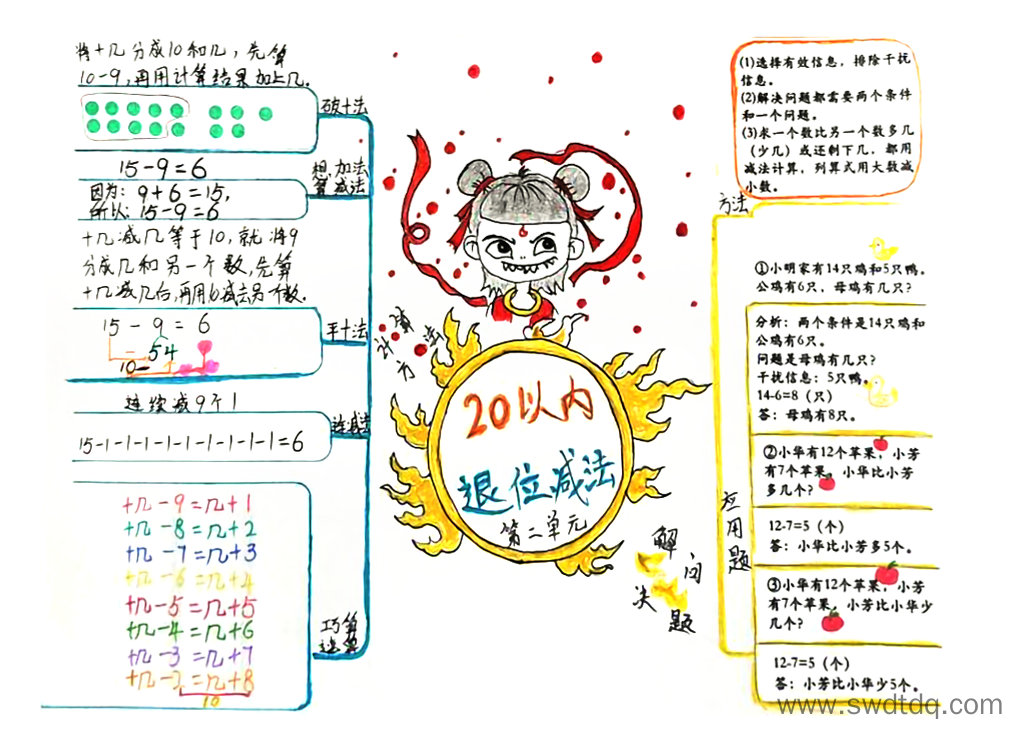 将十几分成10和几，先算
10-9，再用计算结果加上几.
破十法
15-9=6
因为：9+6=15，
所以：15-9=6
想加法
算减法
十几减几等于10，就将9
分成几和另一个数，先算
十几减几后，再用10减去另个数.
15-9=6
54
10
平十法
连续减9个1
15-1-1-1-1-1-1-1-1-1=6
连减法
十几-9=几+1
十几-8=几+2
十几-7=几+3
十几-6=几+4
十几-5=几+5
十几-4=几+6
十几-3=几+7
十几-2=几+8
10
巧算
速算
计算
方法
20以内
退位减法
第二单元
解问
决题
(1)选择有效信息，排除干扰
信息。
(2)解决问题都需要两个条件
和一个问题。
(3)求一个数比另一个数多几
（少几）或还剩下几，都用
减法计算，列算式用大数减
小数。
方法
①小明家有14只鸡和5只鸭。
公鸡有6只，母鸡有几只？
分析：两个条件是14只鸡和
公鸡有6只。
问题是母鸡有几只？
干扰信息：5只鸭。
14-6=8（只）
答：母鸡有8只。
②小华有12个苹果，小芳
有7个苹果，小华比小芳
多几个？
12-7=5（个）
答：小华比小芳多5个。
③小华有12个苹果，小芳
有7个苹果，小芳比小华少
几个？
12-7=5（个）
答：小芳比小华少5个。
应用题
www.swdtdq.com